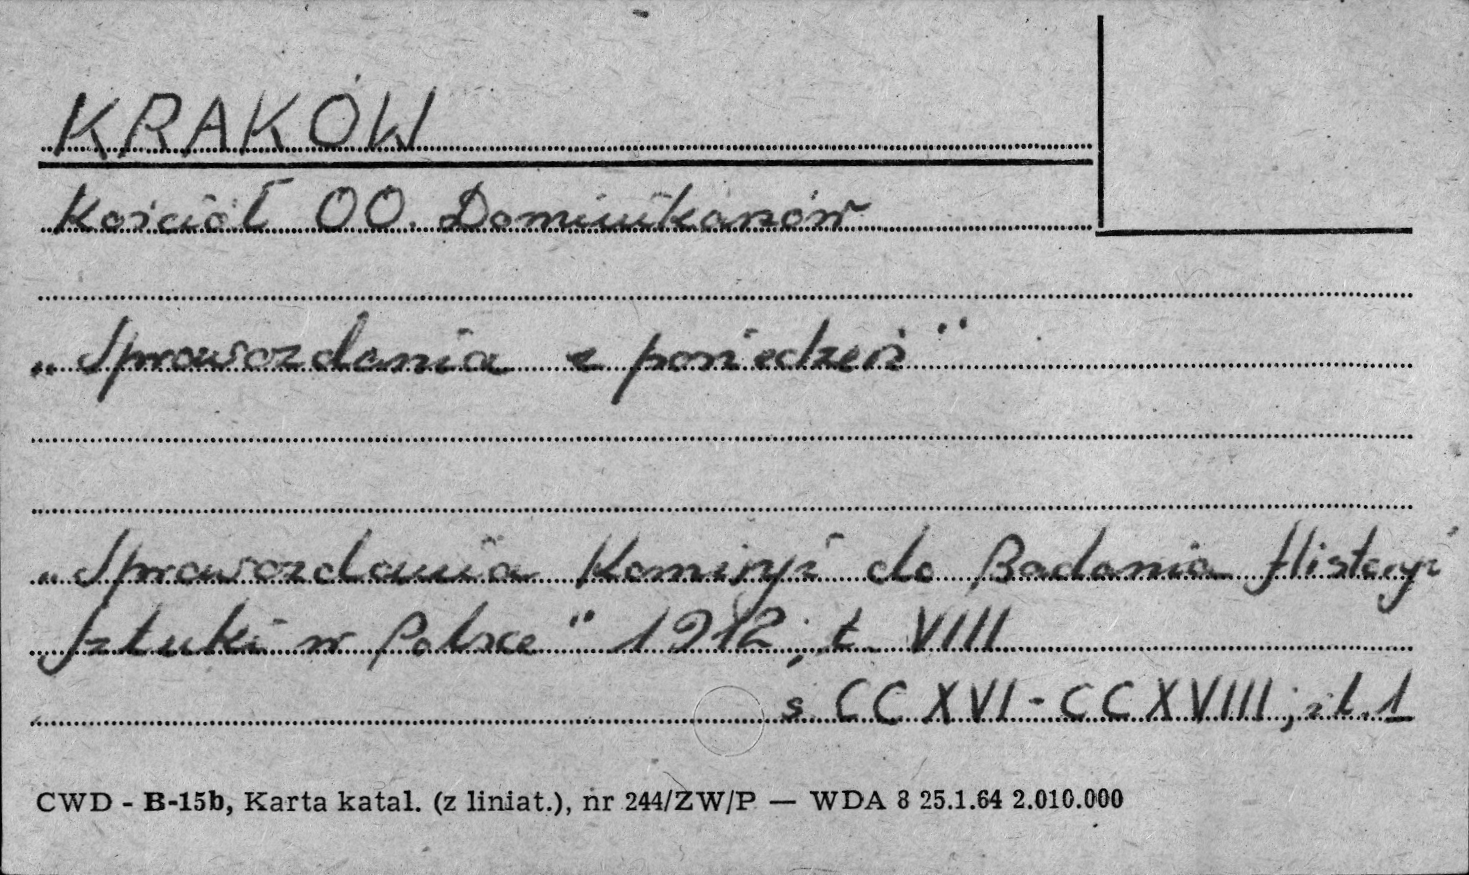 KRAKÓW
Kościół OO. Dominikanów
„Sprawozdania z posiedzeń"
„Sprawozdania Komisyi do Badania Historyi
Sztuki w Polsce" 1912, t. VIII
s. CCXVI-CCXVIII; il. 1
CWD - B-15b, Karta katal. (z liniat.), nr 244/ZW/P — WDA 8 25.1.64 2.010.000